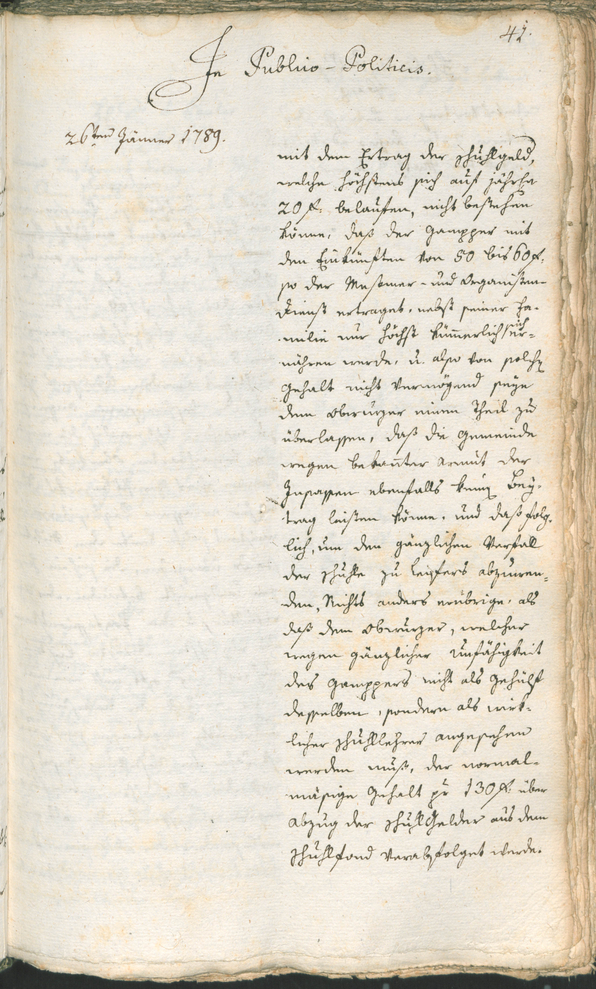 41.
In Publico-Politicis.
26ten Jänner 1789.
mit dem Ertrag der Schuhlgeld,
welche höchstens sich auf jährlich
20 f. belaufen, nicht bestehen
könne, daß der Gampper mit
den Einkünften von 50 bis 60 f.
so der Meßmer- und Organisten-
dienst ertraget, nebst seiner Fa-
milie nur höchst kümmerlich sich er-
nähren werde, u. also von solchem
Gehalt nicht vermögend seye
dem Obwurzer einen Theil zu
überlassen, daß die Gemeinde
wegen bekanter Armut der
Insassen ebenfalls keinen Bey-
trag leisten könne, und daß folg-
lich, um den gänzlichen Verfall
der Schuhle zu Leifers abzuwen-
den, Nichts anders erübrige, als
daß dem Obwurzer, welcher
wegen gänzlicher Unfähigkeit
des Gamppers nicht als Gehülf
desselben, sondern als wirk-
licher Schuhllehrer angesehen
werden muß, der normal-
mäsige Gehalt pr 130 f. über
Abzug der Schuhlgelder aus dem
Schuhlfond verabfolget werde.